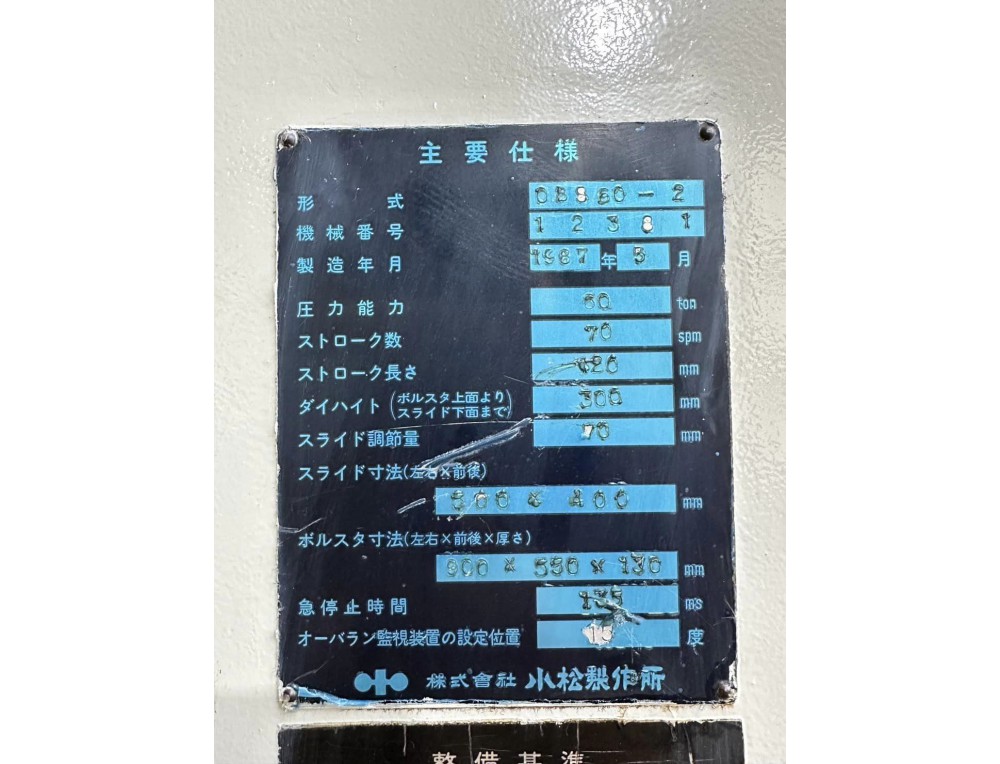 主要仕様
形式 OBS60-2
機械番号 12381
製造年月 1987年5月
圧力能力 60 ton
ストローク数 70 spm
ストローク長さ 120 mm
ダイハイト (ボルスタ上面より スライド下面まで) 300 mm
スライド調節量 70 mm
スライド寸法(左右×前後)
500 × 400 mm
ボルスタ寸法(左右×前後×厚さ)
900 × 550 × 130 mm
急停止時間 ms
オーバラン監視装置の設定位置 15 度
株式會社 小松製作所
整備基準